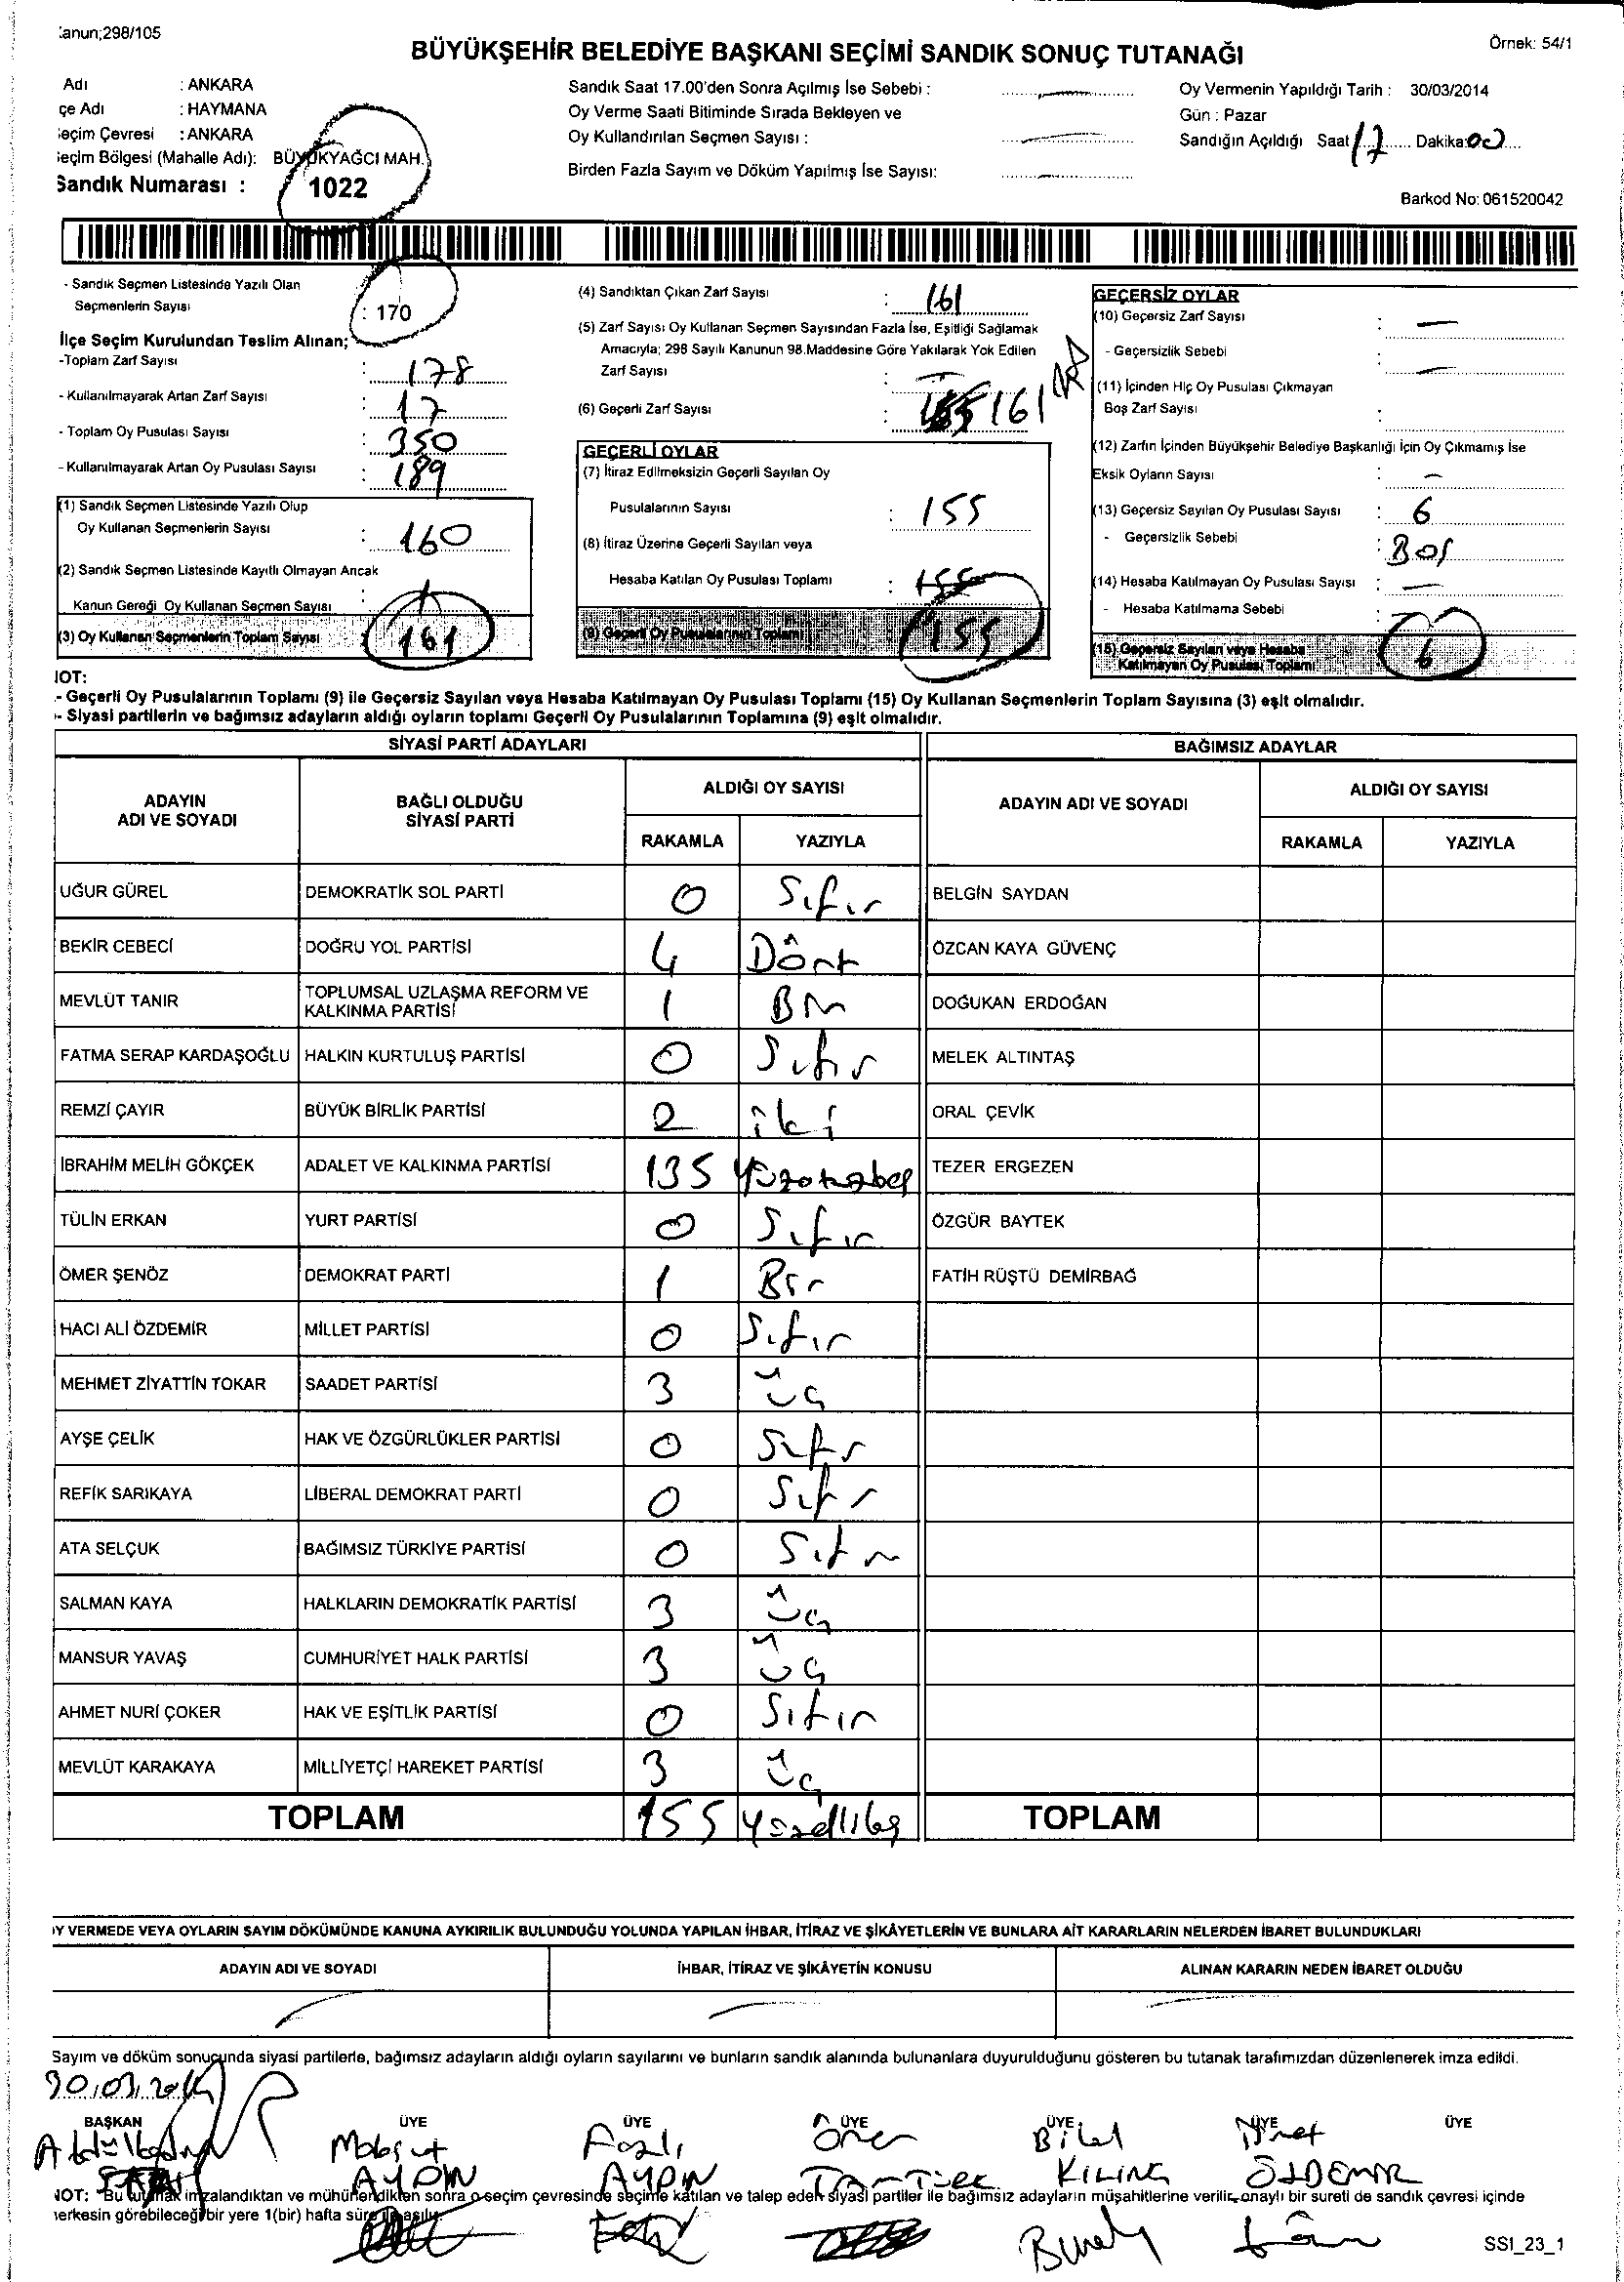 :anun;298/105
BÜYÜKŞEHİR BELEDİYE BAŞKANI SEÇİMİ SANDIK SONUÇ TUTANAĞI
Örnek: 54/1
Adı : ANKARA
çe Adı : HAYMANA
eçim Çevresi : ANKARA
eçim Bölgesi (Mahalle Adı): BÜYÜKYAĞCI MAH.
Sandık Numarası : 1022
Sandık Saat 17.00'den Sonra Açılmış İse Sebebi :
Oy Verme Saati Bitiminde Sırada Bekleyen ve
Oy Kullandırılan Seçmen Sayısı :
Birden Fazla Sayım ve Döküm Yapılmış İse Sayısı:
Oy Vermenin Yapıldığı Tarih : 30/03/2014
Gün : Pazar
Sandığın Açıldığı Saat 17 Dakika:00
Barkod No: 061520042
- Sandık Seçmen Listesinde Yazılı Olan
Seçmenlerin Sayısı : 170
İlçe Seçim Kurulundan Teslim Alınan;
-Toplam Zarf Sayısı : 178
- Kullanılmayarak Artan Zarf Sayısı : 17
- Toplam Oy Pusulası Sayısı : 350
- Kullanılmayarak Artan Oy Pusulası Sayısı : 189
(1) Sandık Seçmen Listesinde Yazılı Olup
Oy Kullanan Seçmenlerin Sayısı : 160
(2) Sandık Seçmen Listesinde Kayıtlı Olmayan Ancak
Kanun Gereği Oy Kullanan Seçmen Sayısı : 1
(3) Oy Kullanan Seçmenlerin Toplam Sayısı : 161
(4) Sandıktan Çıkan Zarf Sayısı : 161
(5) Zarf Sayısı Oy Kullanan Seçmen Sayısından Fazla İse, Eşitliği Sağlamak
Amacıyla; 298 Sayılı Kanunun 98.Maddesine Göre Yakılarak Yok Edilen
Zarf Sayısı : —
(6) Geçerli Zarf Sayısı : 155 161
GEÇERLİ OYLAR
(7) İtiraz Edilmeksizin Geçerli Sayılan Oy
Pusulalarının Sayısı : 155
(8) İtiraz Üzerine Geçerli Sayılan veya
Hesaba Katılan Oy Pusulası Toplamı : 155
(9) Geçerli Oy Pusulalarının Toplamı : 155
GEÇERSİZ OYLAR
(10) Geçersiz Zarf Sayısı : —
- Geçersizlik Sebebi : —
(11) İçinden Hiç Oy Pusulası Çıkmayan
Boş Zarf Sayısı :
(12) Zarfın İçinden Büyükşehir Belediye Başkanlığı İçin Oy Çıkmamış İse
Eksik Oyların Sayısı : —
(13) Geçersiz Sayılan Oy Pusulası Sayısı : 6
- Geçersizlik Sebebi : Boş
(14) Hesaba Katılmayan Oy Pusulası Sayısı : —
- Hesaba Katılmama Sebebi :
(15) Geçersiz Sayılan veya Hesaba
Katılmayan Oy Pusulası Toplamı 6
IOT:
.- Geçerli Oy Pusulalarının Toplamı (9) ile Geçersiz Sayılan veya Hesaba Katılmayan Oy Pusulası Toplamı (15) Oy Kullanan Seçmenlerin Toplam Sayısına (3) eşit olmalıdır.
- Siyasi partilerin ve bağımsız adayların aldığı oyların toplamı Geçerli Oy Pusulalarının Toplamına (9) eşit olmalıdır.
SİYASİ PARTİ ADAYLARI BAĞIMSIZ ADAYLAR
ADAYIN ADI VE SOYADI BAĞLI OLDUĞU SİYASİ PARTİ ALDIĞI OY SAYISI ADAYIN ADI VE SOYADI ALDIĞI OY SAYISI
RAKAMLA YAZIYLA RAKAMLA YAZIYLA
UĞUR GÜREL DEMOKRATİK SOL PARTİ 0 Sıfır BELGİN SAYDAN
BEKİR CEBECİ DOĞRU YOL PARTİSİ 4 Dört ÖZCAN KAYA GÜVENÇ
MEVLÜT TANIR TOPLUMSAL UZLAŞMA REFORM VE KALKINMA PARTİSİ 1 Bir DOĞUKAN ERDOĞAN
FATMA SERAP KARDAŞOĞLU HALKIN KURTULUŞ PARTİSİ 0 Sıfır MELEK ALTINTAŞ
REMZİ ÇAYIR BÜYÜK BİRLİK PARTİSİ 2 iki ORAL ÇEVİK
İBRAHİM MELİH GÖKÇEK ADALET VE KALKINMA PARTİSİ 135 Yüzotuzbeş TEZER ERGEZEN
TÜLİN ERKAN YURT PARTİSİ 0 Sıfır ÖZGÜR BAYTEK
ÖMER ŞENÖZ DEMOKRAT PARTİ 1 Bir FATİH RÜŞTÜ DEMİRBAĞ
HACI ALİ ÖZDEMİR MİLLET PARTİSİ 0 Sıfır
MEHMET ZİYATTİN TOKAR SAADET PARTİSİ 3 Üç
AYŞE ÇELİK HAK VE ÖZGÜRLÜKLER PARTİSİ 0 Sıfır
REFİK SARIKAYA LİBERAL DEMOKRAT PARTİ 0 Sıfır
ATA SELÇUK BAĞIMSIZ TÜRKİYE PARTİSİ 0 Sıfır
SALMAN KAYA HALKLARIN DEMOKRATİK PARTİSİ 3 Üç
MANSUR YAVAŞ CUMHURİYET HALK PARTİSİ 3 Üç
AHMET NURİ ÇOKER HAK VE EŞİTLİK PARTİSİ 0 Sıfır
MEVLÜT KARAKAYA MİLLİYETÇİ HAREKET PARTİSİ 3 Üç
TOPLAM 155 Yüzellibeş TOPLAM
)Y VERMEDE VEYA OYLARIN SAYIM DÖKÜMÜNDE KANUNA AYKIRILIK BULUNDUĞU YOLUNDA YAPILAN İHBAR, İTİRAZ VE ŞİKÂYETLERİN VE BUNLARA AİT KARARLARIN NELERDEN İBARET BULUNDUKLARI
ADAYIN ADI VE SOYADI İHBAR, İTİRAZ VE ŞİKÂYETİN KONUSU ALINAN KARARIN NEDEN İBARET OLDUĞU
Sayım ve döküm sonucunda siyasi partilerle, bağımsız adayların aldığı oyların sayılarını ve bunların sandık alanında bulunanlara duyurulduğunu gösteren bu tutanak tarafımızdan düzenlenerek imza edildi.
30.03.2014
BAŞKAN ÜYE ÜYE ÜYE ÜYE ÜYE ÜYE
Abdülkadir Fazlı Öner Bilal
AYDIN AYDIN KILINÇ ÖZDEMİR
IOT: "Bu tutanak imzalandıktan ve mühürlendikten sonra o seçim çevresinde seçime katılan ve talep eden siyasi partiler ile bağımsız adayların müşahitlerine verilir, onaylı bir sureti de sandık çevresi içinde
erkesin görebileceği bir yere 1(bir) hafta süre ile asılır.
SSI_23_1